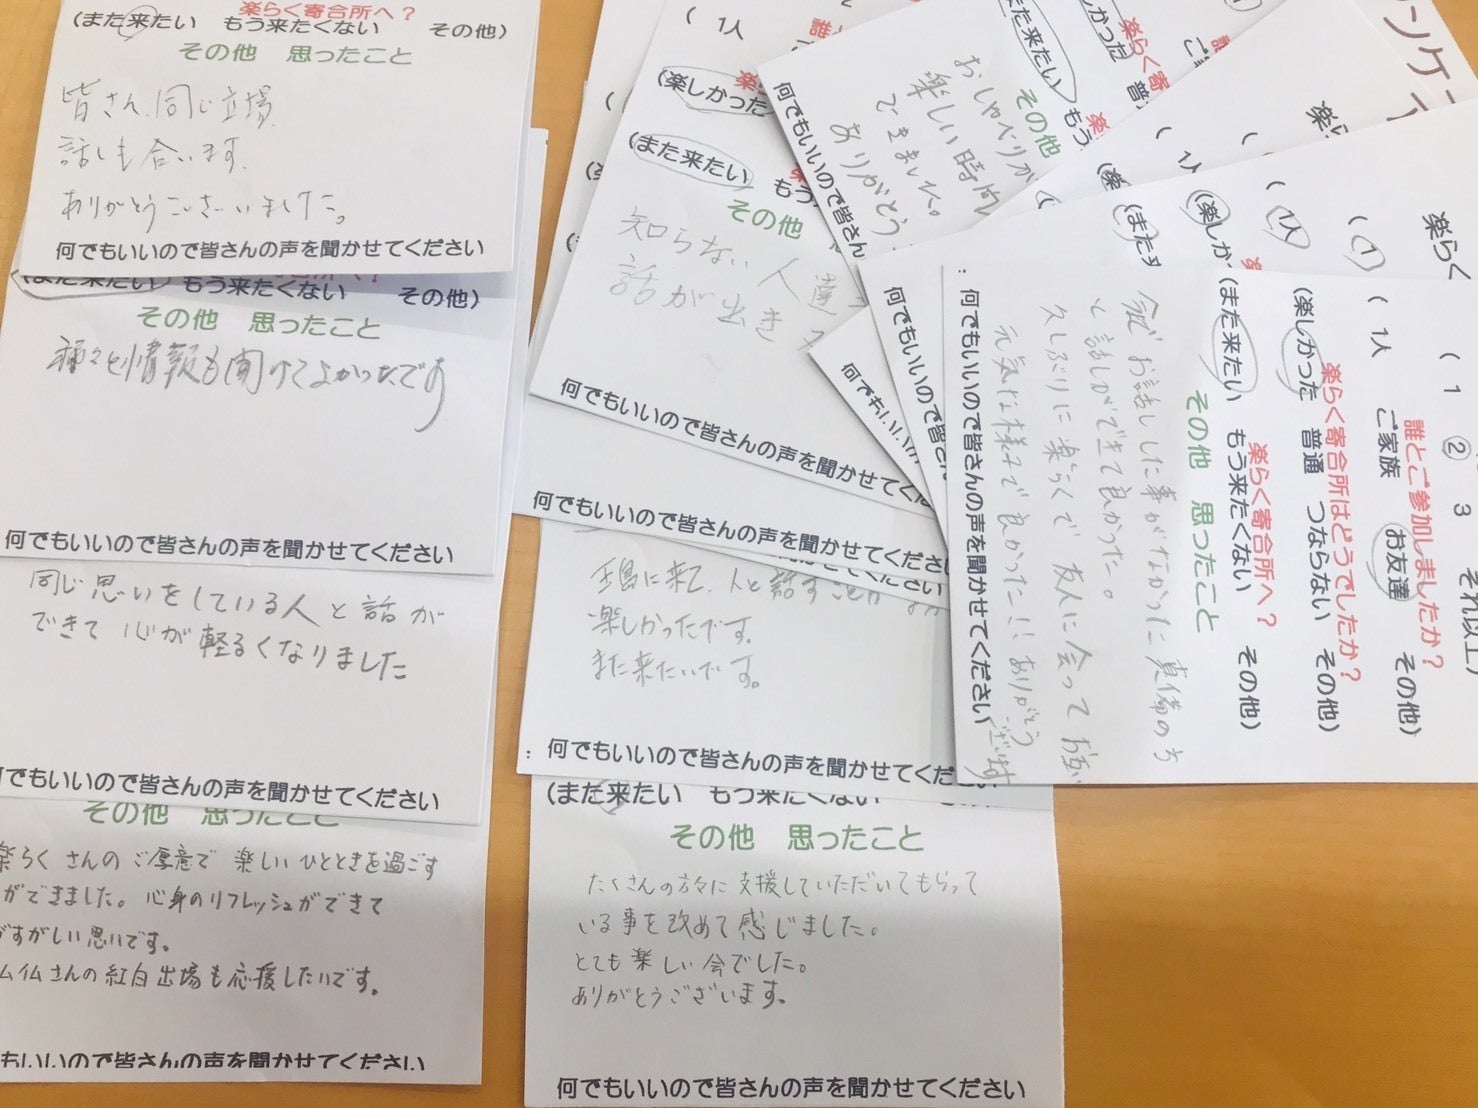 楽らく寄合所へ？
(また来たい もう来たくない その他)
その他 思ったこと
皆さん、同じ立場、
話しも合います。
ありがとうございました。
何でもいいので皆さんの声を聞かせてください
(また来たい) もう来たくない その他)
その他 思ったこと
種々と情報も聞けてよかったです
何でもいいので皆さんの声を聞かせてください
同じ思いをしている人と話が
できて心が軽るくなりました
何でもいいので皆さんの声を聞かせてください
その他 思ったこと
楽らくさんのご厚意で楽しいひとときを過ごす
ができました。心身のリフレッシュができて
すがすがしい思いです。
ム仏さんの紅白出場も応援したいです。
もいいので皆さんの声を聞かせてください
( 1人
(楽しかった
(また来たい) もう
その他
知らない人達
話が出き
何でもいいので皆さんの声を聞かせてくだ
何でもいいので皆さんの声を聞かせてくだ
に来て、人と話すことが
楽しかったです。
また来たいです。
何でもいいので皆さんの声を聞かせてくだ
(また来たい もう来たくない
その他 思ったこと
たくさんの方々に支援していただいてもらって
いる事を改めて感じました。
とても楽しい会でした。
ありがとうございます。
何でもいいので皆さんの声を聞かせてください
しかった 普
また来たい) もう
その他
おしゃべりが
楽しい時間
できました。
ありがとう
何でもいいので皆さん
何でもいいので皆さん
何でもいいので
アンケ
楽
( 1人
楽らく
( 1
( 1人
(楽しか
(また
( 1 ② 3 それ以上)
誰とご参加しましたか？
( 1人 ご家族 お友達 その他)
楽らく寄合所はどうでしたか？
(楽しかった 普通 つならない その他)
楽らく寄合所へ？
(また来たい もう来たくない その他)
その他 思ったこと
今までお話しした事がなかった真備の方
と話しができて良かった。
久しぶりに楽らくで友人に会ってお互い
元気な様子で良かった!! ありがとう
ございます
何でもいいので皆さんの声を聞かせてください